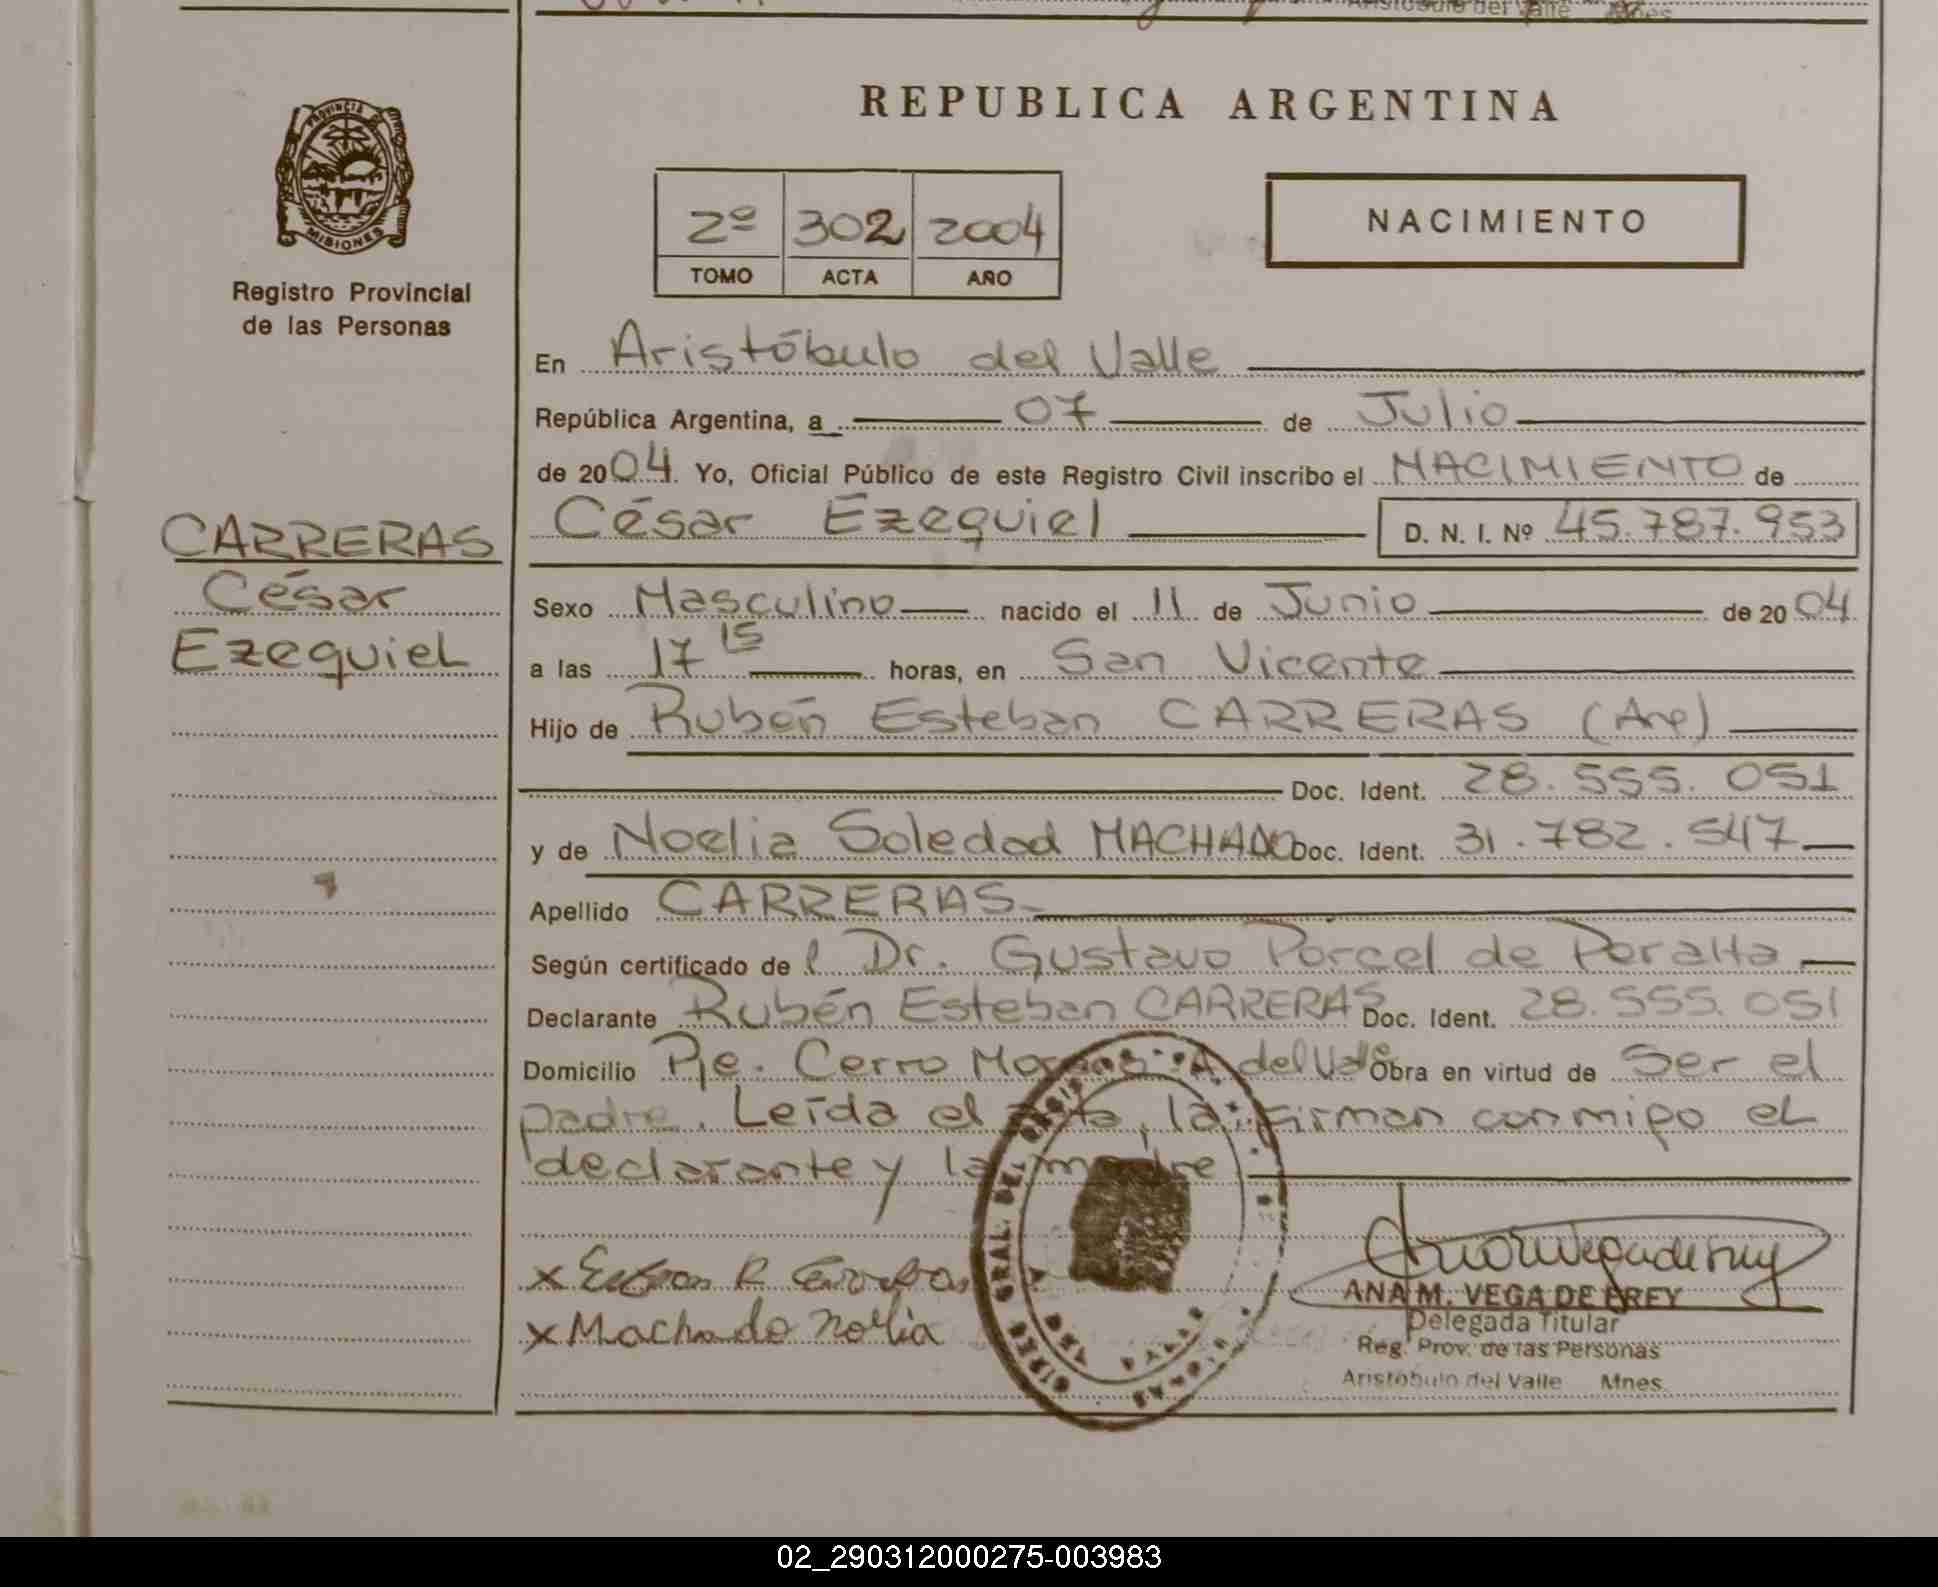 REPUBLICA ARGENTINA
PROVINCIA DE
MISIONES
Registro Provincial
de las Personas
2º 302 2004
TOMO ACTA AÑO
NACIMIENTO
En Aristóbulo del Valle
República Argentina, a 07 de Julio
de 2004. Yo, Oficial Público de este Registro Civil inscribo el NACIMIENTO de
CARRERAS
César
Ezequiel
César Ezequiel D. N. I. Nº 45.787.953
Sexo Masculino nacido el 11 de Junio de 2004
a las 17 15 horas, en San Vicente
Hijo de Rubén Esteban CARRERAS (Arg)
Doc. Ident. 28.555.051
y de Noelia Soledad MACHADO Doc. Ident. 31.782.547
Apellido CARRERAS
Según certificado del Dr. Gustavo Porcel de Peralta
Declarante Rubén Esteban CARRERAS Doc. Ident. 28.555.051
Domicilio Pje. Cerro Moreno A. del Valle Obra en virtud de Ser el
padre. Leída el acta, la firman conmigo el
declarante y la madre
x Esteban R Carreras
x Machado Noelia
GRAL. DEL REGIS
ANA M. VEGA DE FREY
Delegada Titular
Reg. Prov. de las Personas
Aristóbulo del Valle Mnes.
02_290312000275-003983